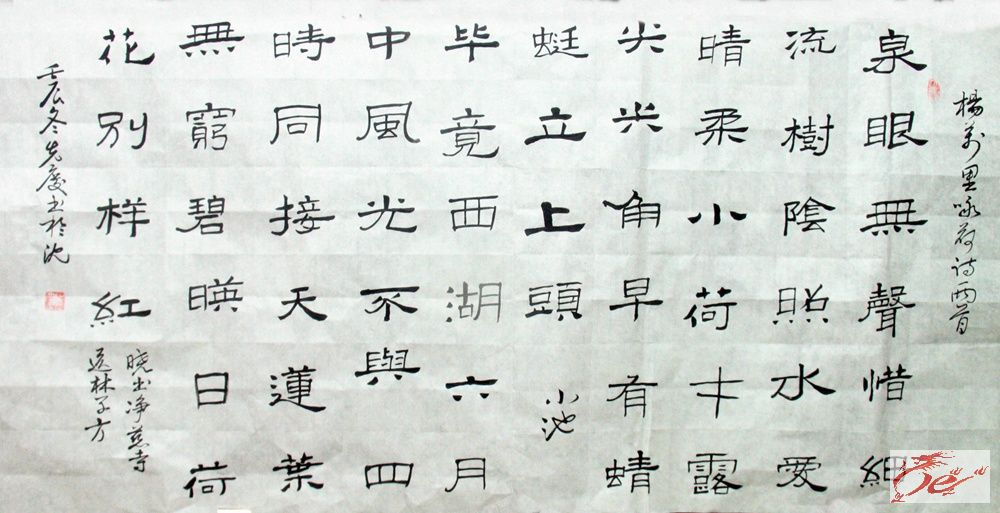 楊萬里咏荷诗两首
泉眼無聲惜細
流樹陰照水愛
晴柔小荷才露
尖尖角早有蜻
蜓立上頭 小池
毕竟西湖六月
中風光不與四
時同接天蓮葉
無窮碧暎日荷
花别样紅
晓出净慈寺
送林子方
壬辰冬先慶书於沈